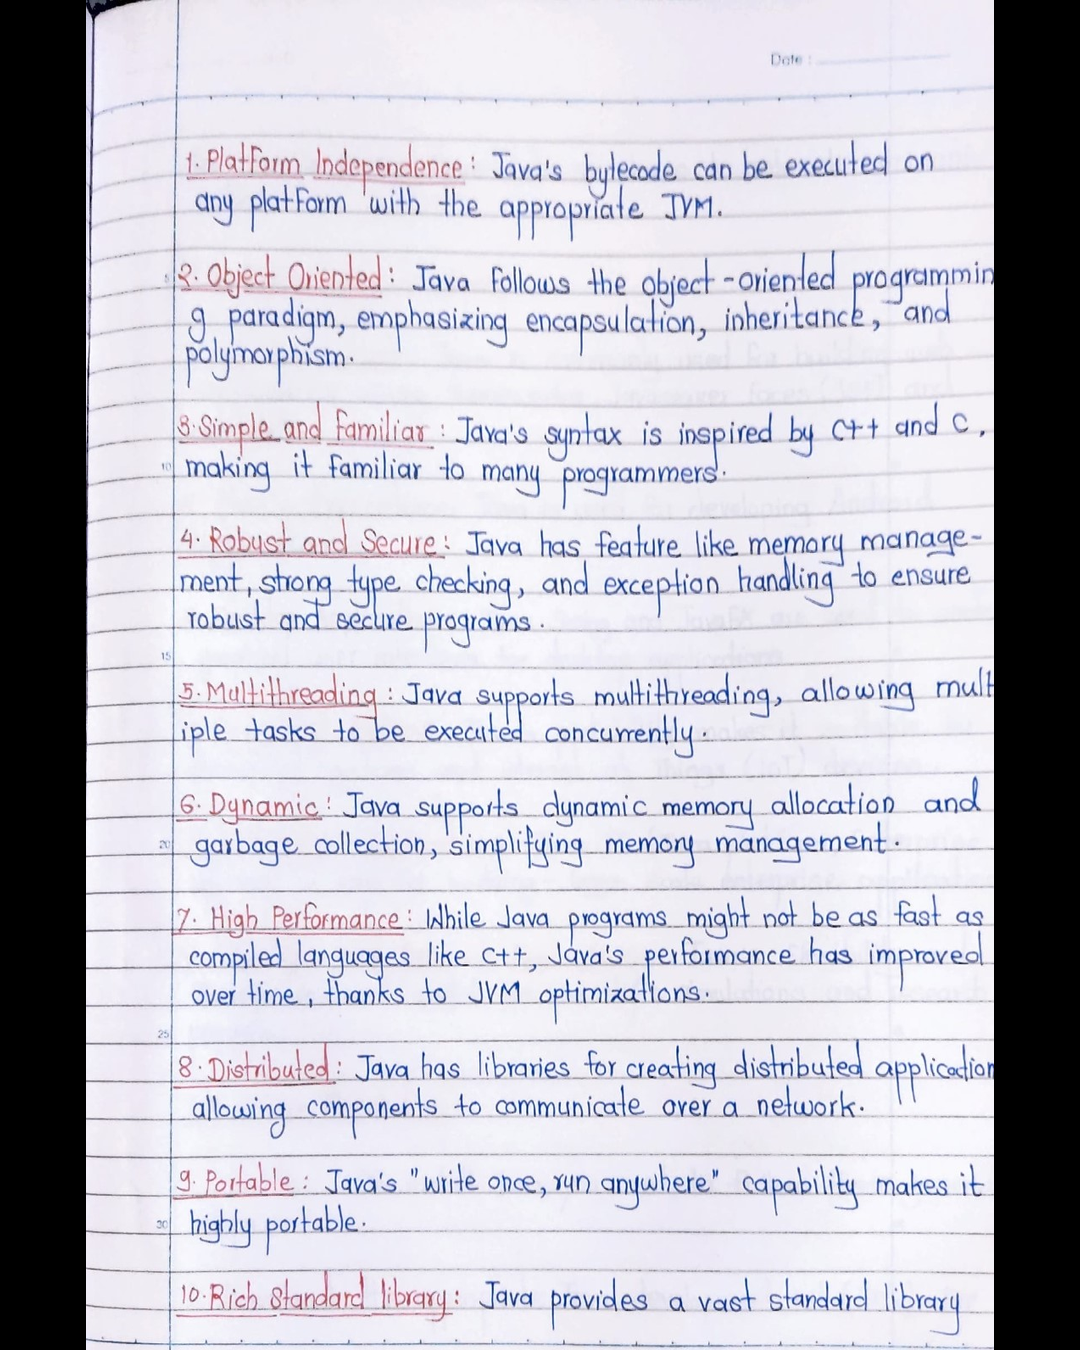 Date :
1. Platform Independence : Java's bytecode can be executed on
any platform with the appropriate JVM.
2. Object Oriented : Java follows the object-oriented programmin
g paradigm, emphasizing encapsulation, inheritance, and
polymorphism.
3. Simple and familiar : Java's syntax is inspired by C++ and C,
10
making it familiar to many programmers.
4. Robust and Secure : Java has feature like memory manage-
ment, strong type checking, and exception handling to ensure
robust and secure programs.
15
5. Multithreading : Java supports multithreading, allowing mult
iple tasks to be executed concurrently.
6. Dynamic : Java supports dynamic memory allocation and
20
garbage collection, simplifying memory management.
7. High Performance : While Java programs might not be as fast as
compiled languages like C++, Java's performance has improved
over time, thanks to JVM optimizations.
25
8. Distributed : Java has libraries for creating distributed application
allowing components to communicate over a network.
9. Portable : Java's "write once, run anywhere" capability makes it
30
highly portable.
10. Rich Standard library : Java provides a vast standard library